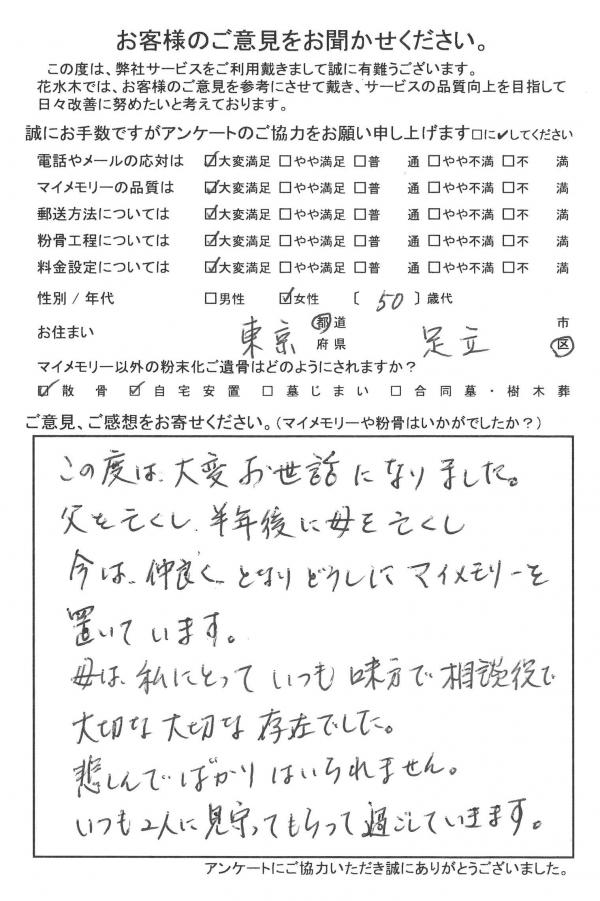 お客様のご意見をお聞かせください。
この度は、弊社サービスをご利用戴きまして誠に有難うございます。
花水木では、お客様のご意見を参考にさせて戴き、サービスの品質向上を目指して
日々改善に努めたいと考えております。
誠にお手数ですがアンケートのご協力をお願い申し上げます□に✔してください
電話やメールの応対は ☑大変満足 □やや満足 □普 通 □やや不満 □不 満
マイメモリーの品質は ☑大変満足 □やや満足 □普 通 □やや不満 □不 満
郵送方法については ☑大変満足 □やや満足 □普 通 □やや不満 □不 満
粉骨工程については ☑大変満足 □やや満足 □普 通 □やや不満 □不 満
料金設定については ☑大変満足 □やや満足 □普 通 □やや不満 □不 満
性別 / 年代 □男性 ☑女性 〔 50 〕歳代
お住まい 東京 都道府県 足立 市区
マイメモリー以外の粉末化ご遺骨はどのようにされますか?
☑散骨 ☑自宅安置 □墓じまい □合同墓・樹木葬
ご意見、ご感想をお寄せください。(マイメモリーや粉骨はいかがでしたか?)
この度は、大変お世話になりました。
父を亡くし、半年後に母を亡くし
今は、仲良く となりどうしに マイメモリーを
置いています。
母は、私にとって いつも 味方で 相談役で
大切な 大切な 存在でした。
悲しんでばかりはいられません。
いつも2人に見守ってもらって過ごしていきます。
アンケートにご協力いただき誠にありがとうございました。